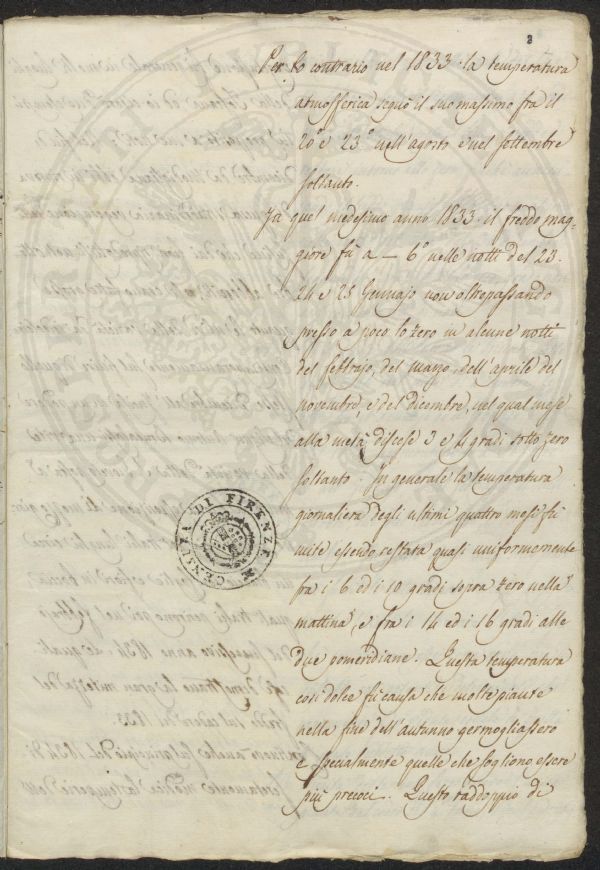 3
Per lo contrario nel 1833. la temperatura
atmosferica seguò il suo massimo fra il
20° e 23° nell'agosto e nel settembre
soltanto.
In quel medesimo anno 1833. il freddo mag-
giore fù a — 6° nelle notti del 23.
24 e 25 Gennajo non oltrepassando
presso a poco lo zero in alcune notti
del febbrajo, del marzo, dell'aprile del
novembre, e del dicembre, nel qual mese
alla metà discese 3 e 4 gradi sotto zero
soltanto. In generale la temperatura
giornaliera degli ultimi quattro mesi fù
mite essendo restata quasi uniformemente
fra i 6 ed i 10 gradi sopra zero nella
mattina, e fra i 14 ed i 16 gradi alle
due pomeridiane. Questa temperatura
così dolce fù causa che molte piante
nella fine dell'autunno germogliassero
e specialmente quelle che sogliono essere
più precoci. Questo raddoppio di
CENSURA DI FIRENZE